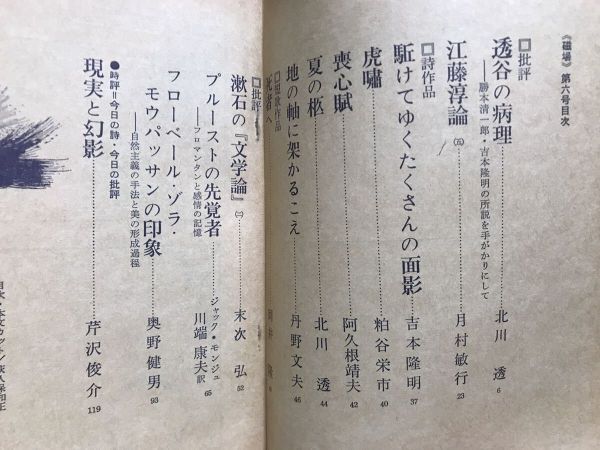 《磁場》第六号目次
□批評
透谷の病理……北川 透 6
――勝本清一郎・吉本隆明の所説を手がかりにして
江藤淳論㈤……月村敏行 23
□詩作品
駈けてゆくたくさんの面影……吉本隆明 37
虎嘯……粕谷栄市 40
喪心賦……阿久根靖夫 42
夏の柩……北川 透 44
地の軸に架かるこえ……丹野文夫 46
□短歌作品
死者へ……岡井 隆
□批評
漱石の『文学論』㈡……末次 弘 52
プルーストの先覚者……ジャック・モンジュ 川端康夫訳 65
――フロマンタンと感情の記憶
フローベール・ゾラ・
モウパッサンの印象……奥野健男 93
――自然主義の手法と美の形成過程
●時評=今日の詩・今日の批評
現実と幻影……芹沢俊介 119